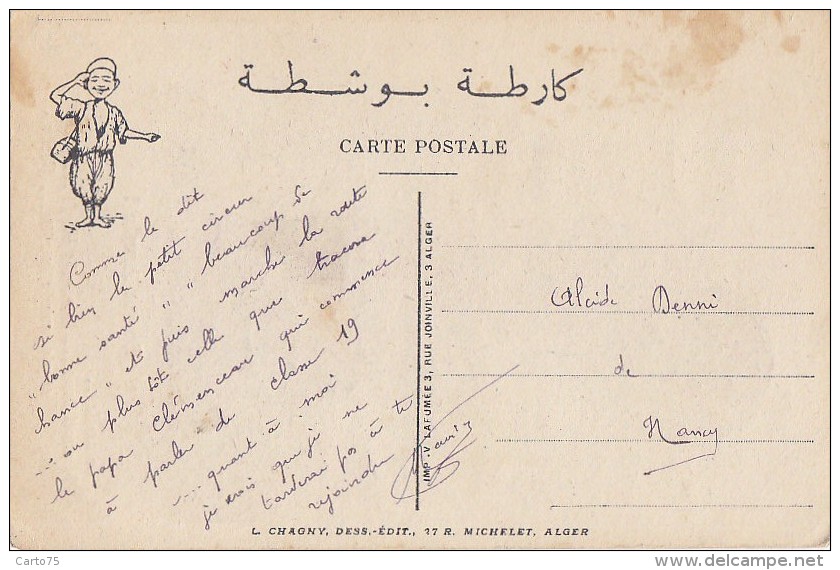 كارطة بوشطة
CARTE POSTALE
Comme le dit
si bien le petit cireur
"bonne santé" "beaucoup de
chance" et puis marche la route
.... ou plus tôt celle que tracera
le papa Clémenceau qui commence
à parler de classe 19
.... quant à moi
je crois que je ne
tarderai pas à te
rejoindre
Alcide Denni
de
Nancy
IMP. V. LAFUMÉE 3, RUE JOINVILLE, 3 ALGER
L. CHAGNY, DESS.-ÉDIT., 27 R. MICHELET, ALGER
Carto75
www.delcampe.net